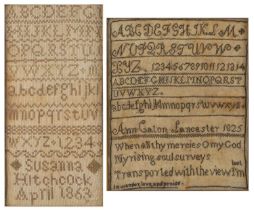 ABCDEFGH
IJKLM
OPQRSTU
VWXYZ
abcdefghijkl
mnopqrstuv
wxyz 1234
Susanna
Hitchcock
April 1863
ABCDEFGHIJKLM
NOPQRSTUVW
XYZ 1234567891011121314
ABCDEFGHIJKLMNOPQRST
UVWXYZ
abcdefghijklmnopqrstuvwxyz
Ann Eaton Lancaster 1825
When all thy mercies O my God
My rising soul surveys
Transported with the view Im
lost
in wonder, love, and praise